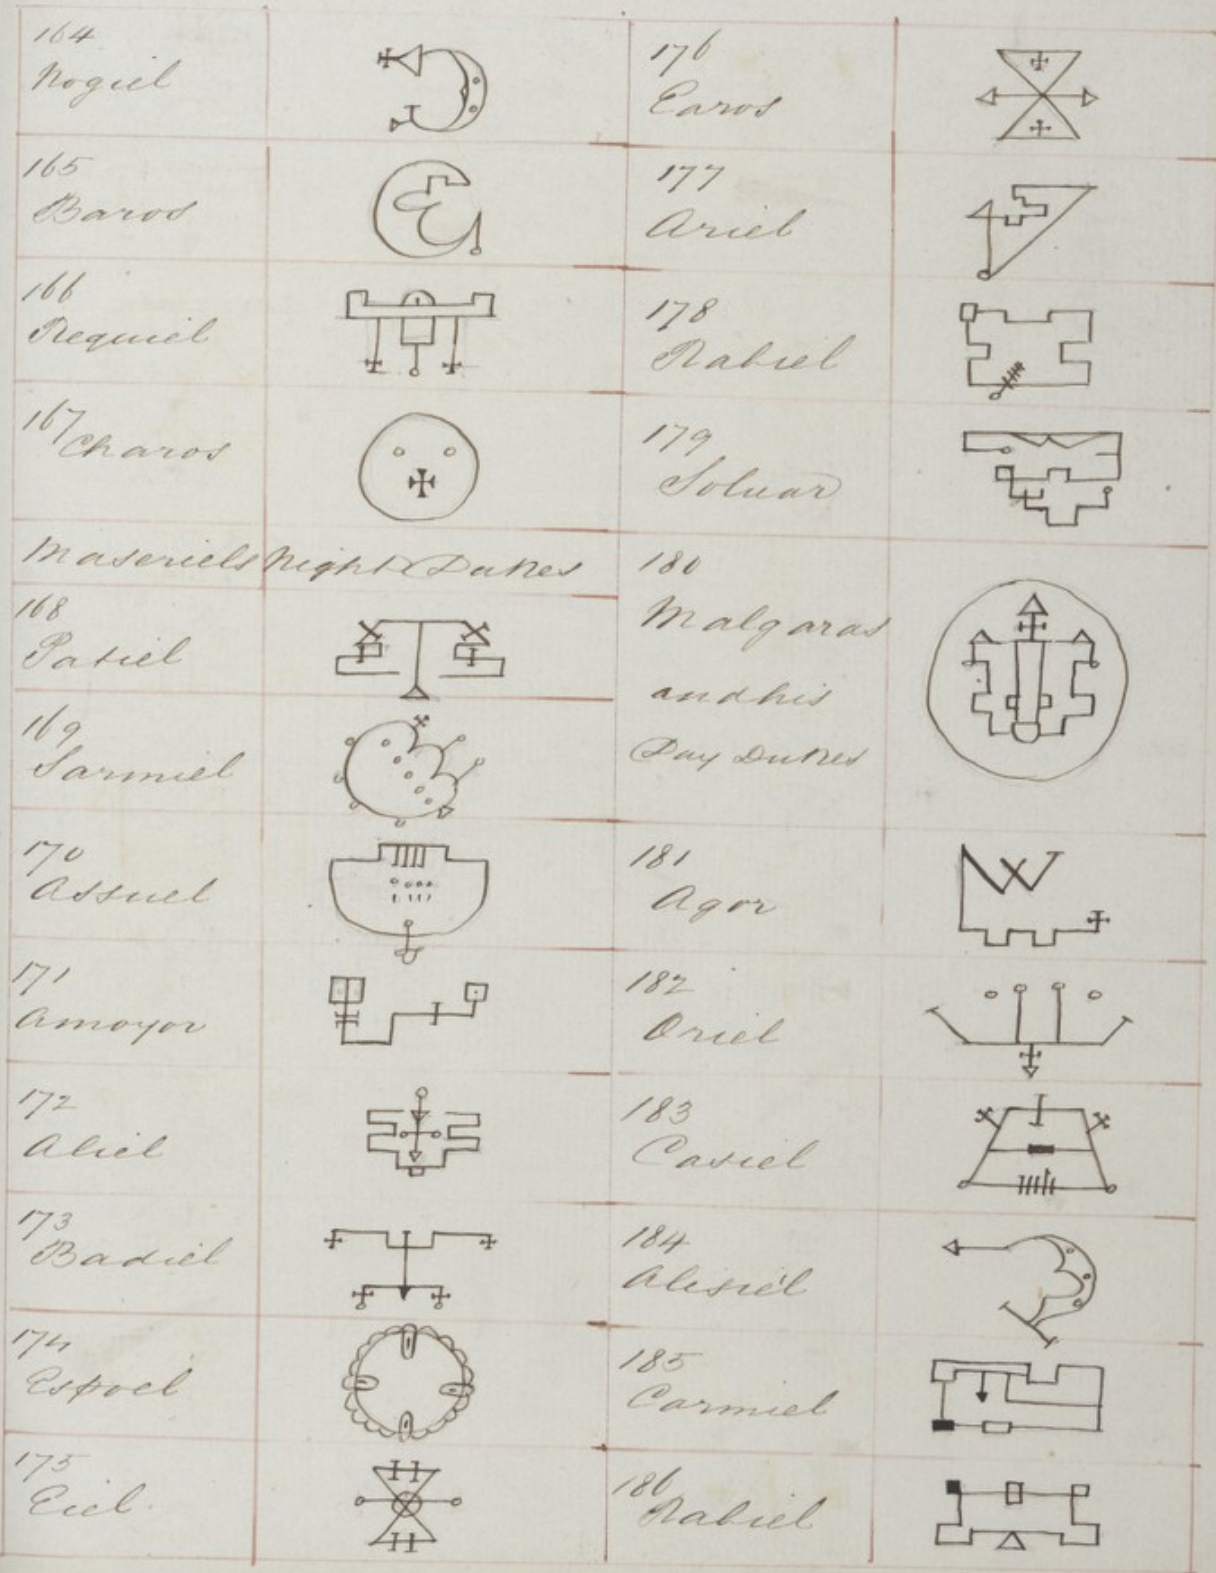 164
Nogiel
165
Baros
166
Requiel
167
Charos
Maseriels Night Dukes
168
Patiel
169
Sarmiel
170
Assuel
171
Amoyor
172
Aliel
173
Badiel
174
Espoel
175
Eiel.
176
Earos
177
Ariel
178
Rabiel
179
Soluar
180
Malgaras
and his
Day Dukes
181
Agor
182
Oriel
183
Casiel
184
Alisiel
185
Carmiel
186
Rabiel